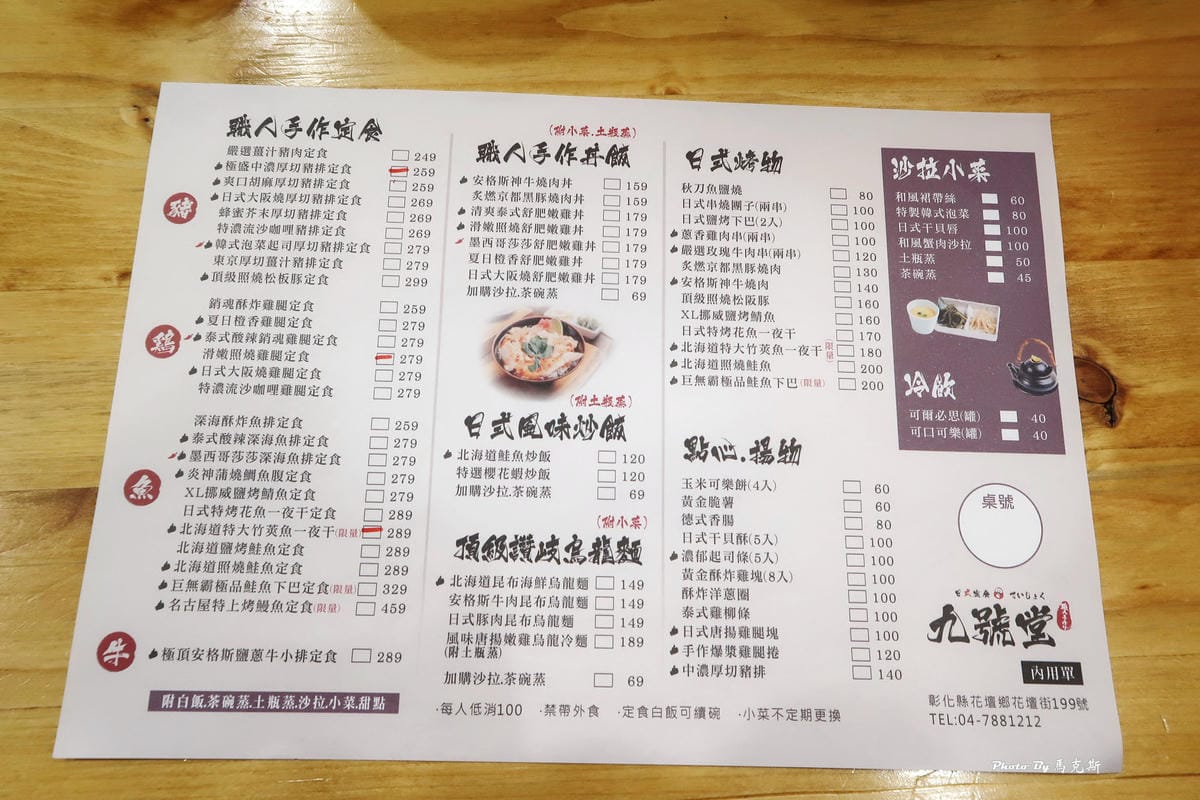 職人手作定食
豬
嚴選薑汁豬肉定食 249
極盛中濃厚切豬排定食 259
爽口胡麻厚切豬排定食 259
日式大阪燒厚切豬排定食 269
蜂蜜芥末厚切豬排定食 269
特濃流沙咖哩豬排定食 269
韓式泡菜起司厚切豬排定食 279
東京厚切薑汁豬排定食 279
頂級照燒松板豚定食 299
鷄
銷魂酥炸雞腿定食 259
夏日橙香雞腿定食 279
泰式酸辣銷魂雞腿定食 279
滑嫩照燒雞腿定食 279
日式大阪燒雞腿定食 279
特濃流沙咖哩雞腿定食 279
魚
深海酥炸魚排定食 259
泰式酸辣深海魚排定食 279
墨西哥莎莎深海魚排定食 279
炎神蒲燒鯛魚腹定食 279
XL挪威鹽烤鯖魚定食 279
日式特烤花魚一夜干定食 289
北海道特大竹莢魚一夜干(限量) 289
北海道鹽烤鮭魚定食 289
北海道照燒鮭魚定食 289
巨無霸極品鮭魚下巴定食(限量) 329
名古屋特上烤鰻魚定食(限量) 459
牛
極頂安格斯鹽蔥牛小排定食 289
附白飯.茶碗蒸.土瓶蒸.沙拉.小菜.甜點
(附小菜.土瓶蒸)
職人手作丼飯
安格斯神牛燒肉丼 159
炙燃京都黑豚燒肉丼 159
清爽泰式舒肥嫩雞丼 179
滑嫩照燒舒肥嫩雞丼 179
墨西哥莎莎舒肥嫩雞丼 179
夏日橙香舒肥嫩雞丼 179
日式大阪燒舒肥嫩雞丼 179
加購沙拉.茶碗蒸 69
(附土瓶蒸)
日式風味炒飯
北海道鮭魚炒飯 120
特選櫻花蝦炒飯 120
加購沙拉.茶碗蒸 69
(附小菜)
頂級讚岐烏龍麵
北海道昆布海鮮烏龍麵 149
安格斯牛肉昆布烏龍麵 149
日式豚肉昆布烏龍麵 149
風味唐揚嫩雞烏龍冷麵 189
(附土瓶蒸)
加購沙拉.茶碗蒸 69
·每人低消100 ·禁帶外食 ·定食白飯可續碗 ·小菜不定期更換
日式烤物
秋刀魚鹽燒 80
日式串燒團子(兩串) 100
日式鹽烤下巴(2入) 100
蔥香雞肉串(兩串) 100
嚴選玫瑰牛肉串(兩串) 120
炙燃京都黑豚燒肉 130
安格斯神牛燒肉 140
頂級照燒松阪豚 160
XL挪威鹽烤鯖魚 160
日式特烤花魚一夜干 170
北海道特大竹莢魚一夜干(限量) 180
北海道照燒鮭魚 200
巨無霸極品鮭魚下巴(限量) 200
點心.揚物
玉米可樂餅(4入) 60
黃金脆薯 60
德式香腸 80
日式干貝酥(5入) 100
濃郁起司條(5入) 100
黃金酥炸雞塊(8入) 100
酥炸洋蔥圈 100
泰式雞柳條 100
日式唐揚雞腿塊 100
手作爆漿雞腿捲 120
中濃厚切豬排 140
沙拉小菜
和風裙帶絲 60
特製韓式泡菜 80
日式干貝唇 100
和風蟹肉沙拉 100
土瓶蒸 50
茶碗蒸 45
冷飲
可爾必思(罐) 40
可口可樂(罐) 40
桌號
九號堂
內用單
彰化縣花壇鄉花壇街199號
TEL:04-7881212
Photo By 馬克斯